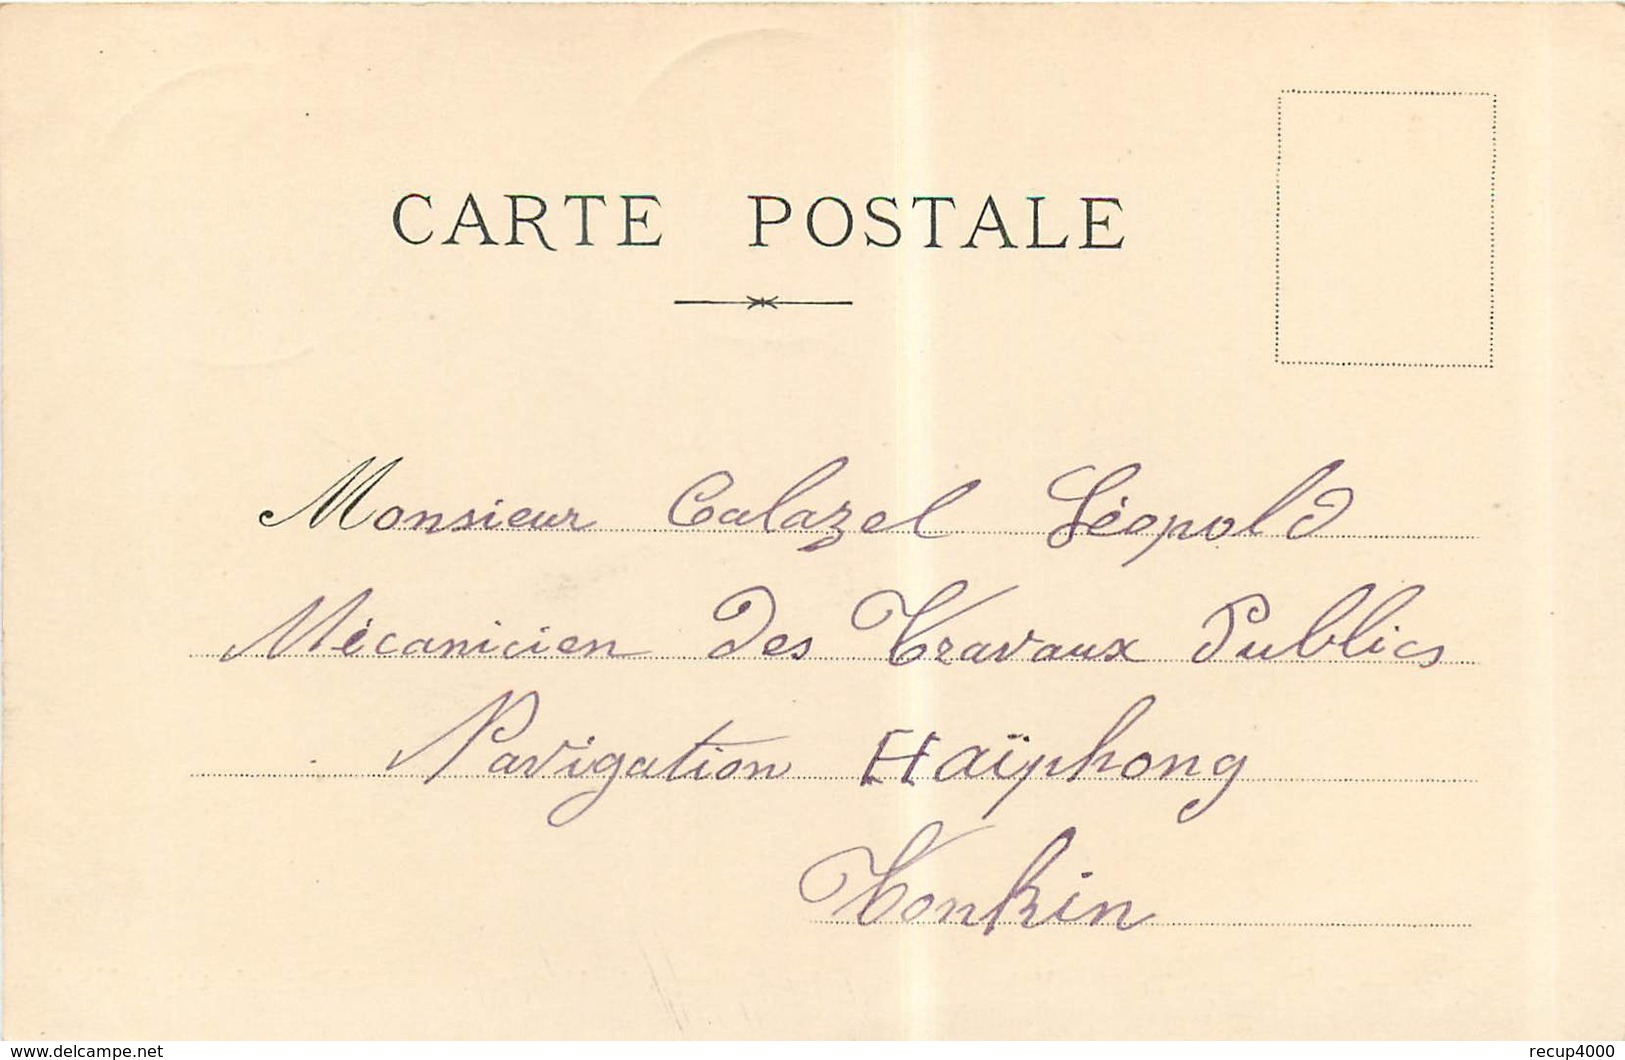 CARTE POSTALE
Monsieur Calazel Léopold
Mécanicien des Travaux Publics
Navigation Haïphong
Tonkin
www.delcampe.net
recup4000